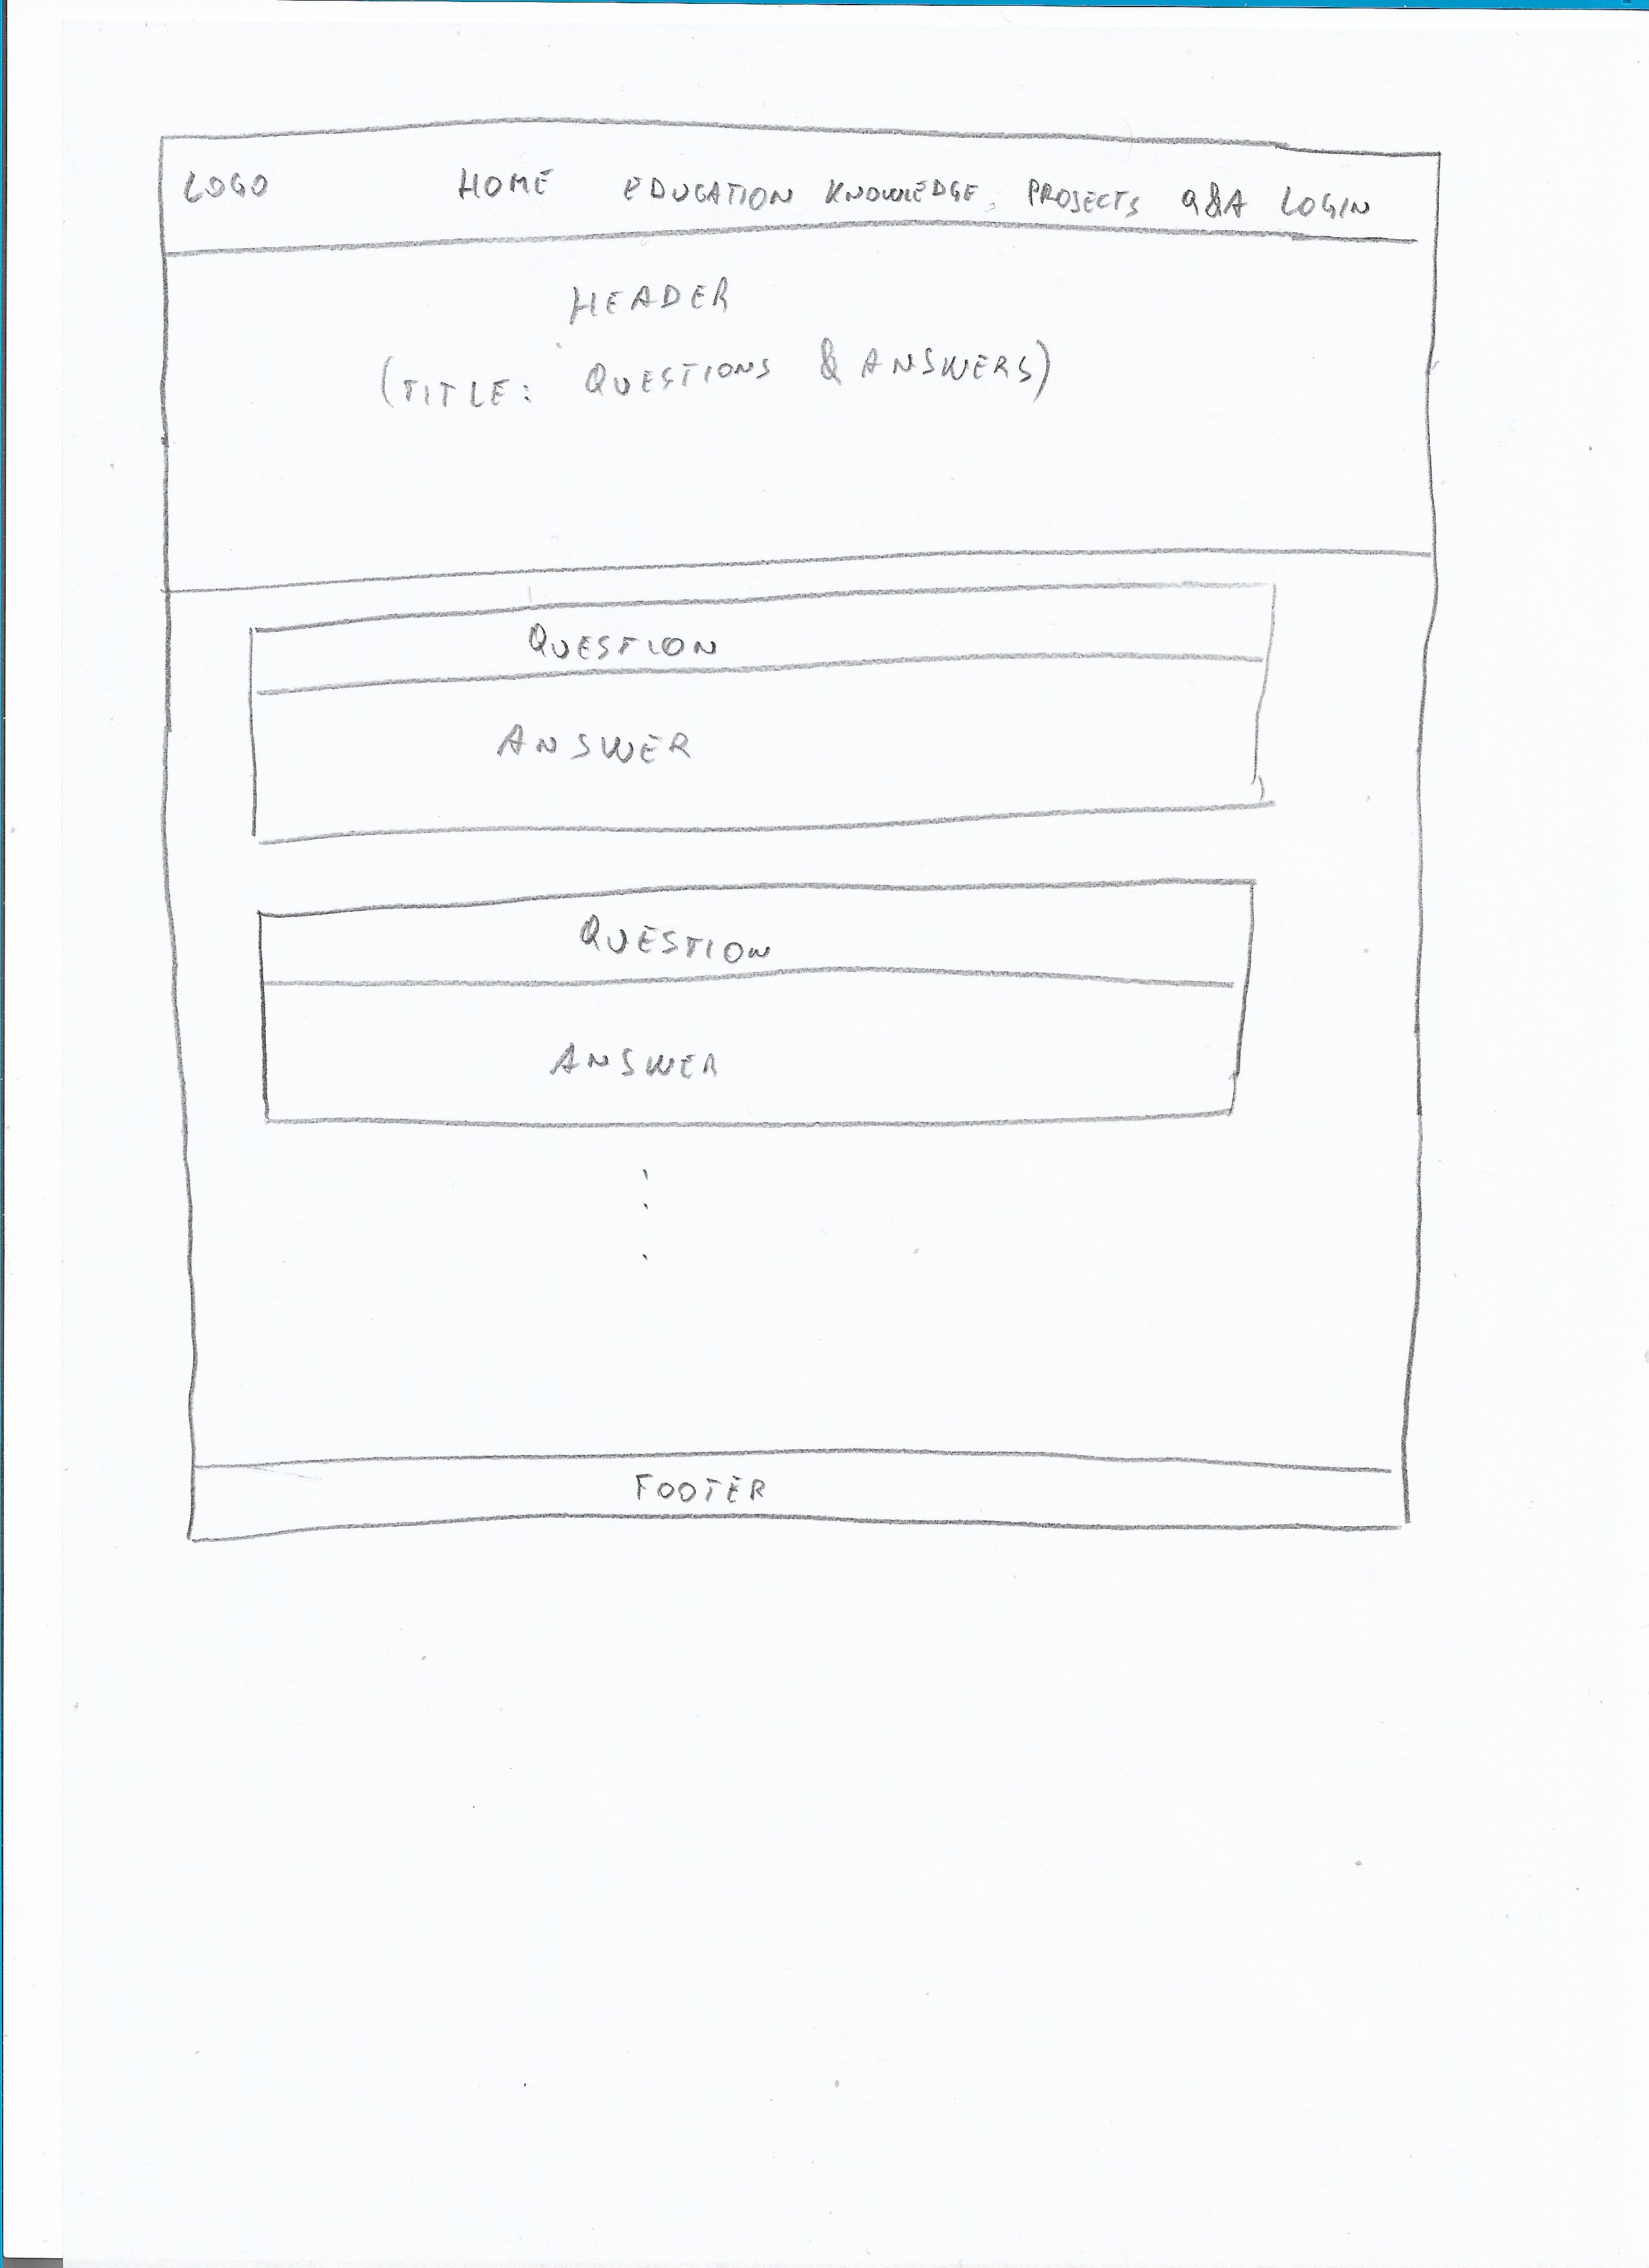 LOGO HOME EDUCATION KNOWLEDGE PROJECTS Q&A LOGIN
HEADER
(TITLE: QUESTIONS & ANSWERS)
QUESTION
ANSWER
QUESTION
ANSWER
FOOTER